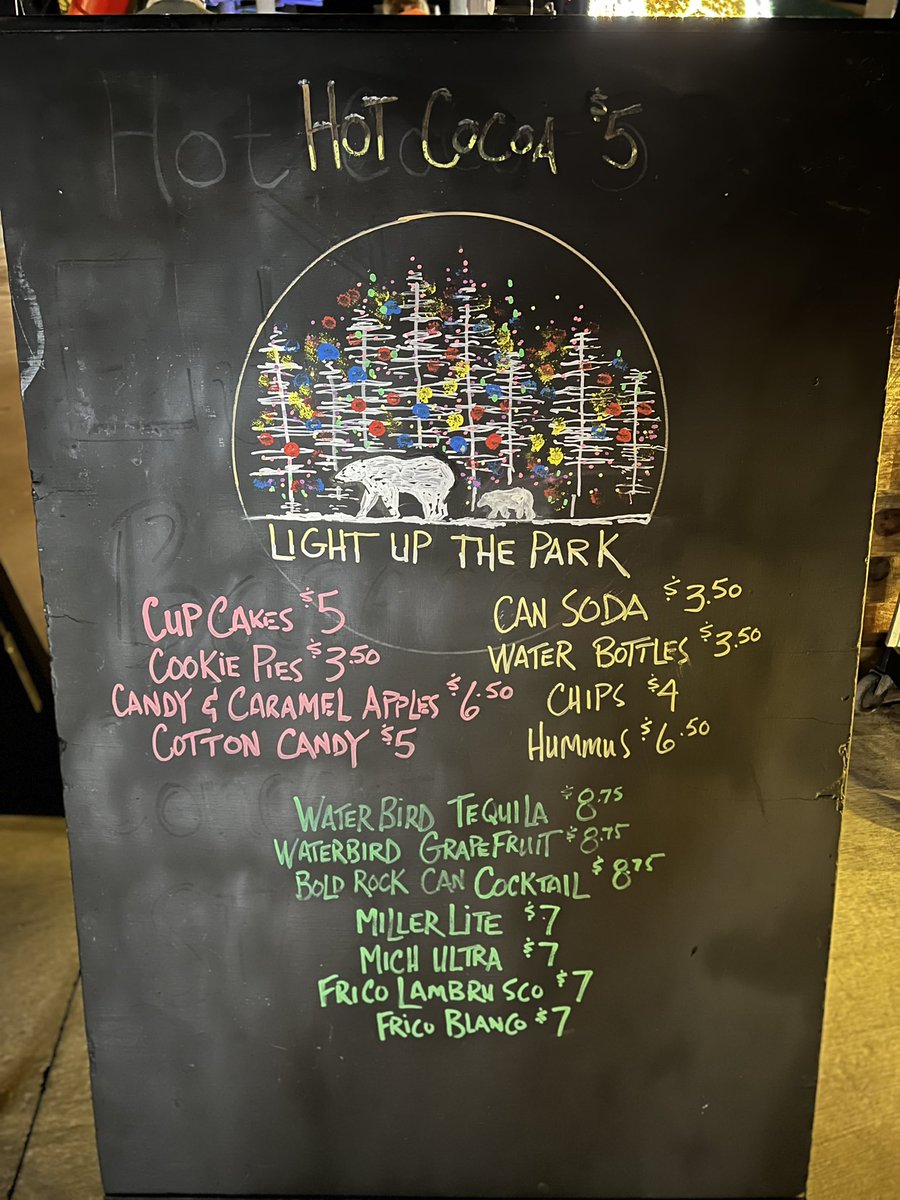 HOT COCOA $5
LIGHT UP THE PARK
CUP CAKES $5
COOKIE PIES $3.50
CANDY & CARAMEL APPLES $6.50
COTTON CANDY $5
CAN SODA $3.50
WATER BOTTLES $3.50
CHIPS $4
HUMMUS $6.50
WATER BIRD TEQUILA $8.75
WATERBIRD GRAPEFRUIT $8.75
BOLD ROCK CAN COCKTAIL $8.75
MILLER LITE $7
MICH ULTRA $7
FRICO LAMBRUSCO $7
FRICO BLANCO $7